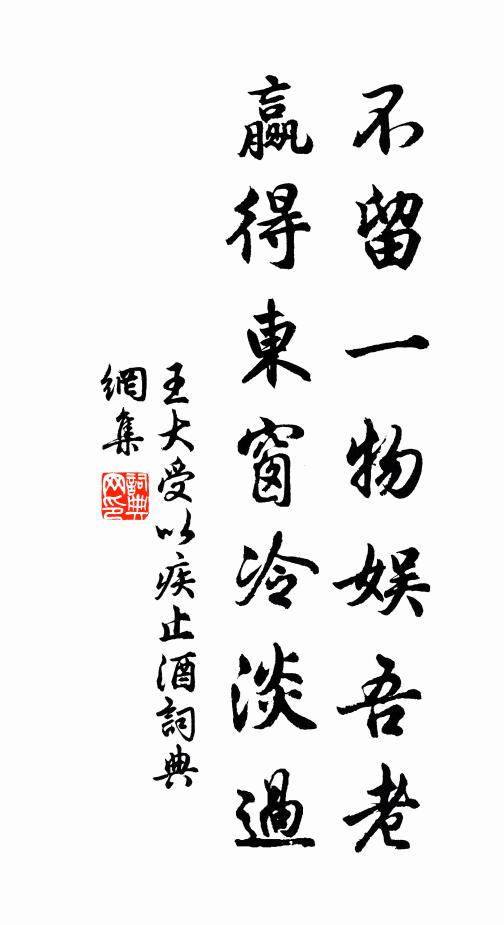 不留一物娛吾老
贏得東窗冷淡過
王大受以疾止酒詞典
網集
詞典
网印